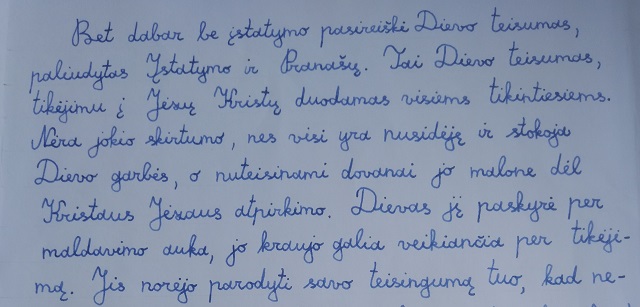 Bet dabar be įstatymo pasireiškė Dievo teisumas,
paliudytas Įstatymo ir Pranašų. Tai Dievo teisumas,
tikėjimu į Jėzų Kristų duodamas visiems tikintiesiems.
Nėra jokio skirtumo, nes visi yra nusidėję ir stokoja
Dievo garbės, o nuteisinami dovanai jo malone dėl
Kristaus Jėzaus atpirkimo. Dievas jį paskyrė per
maldavimo auka, jo kraujo galia veikiančia per tikėji-
mą. Jis norėjo parodyti savo teisingumą tuo, kad ne-